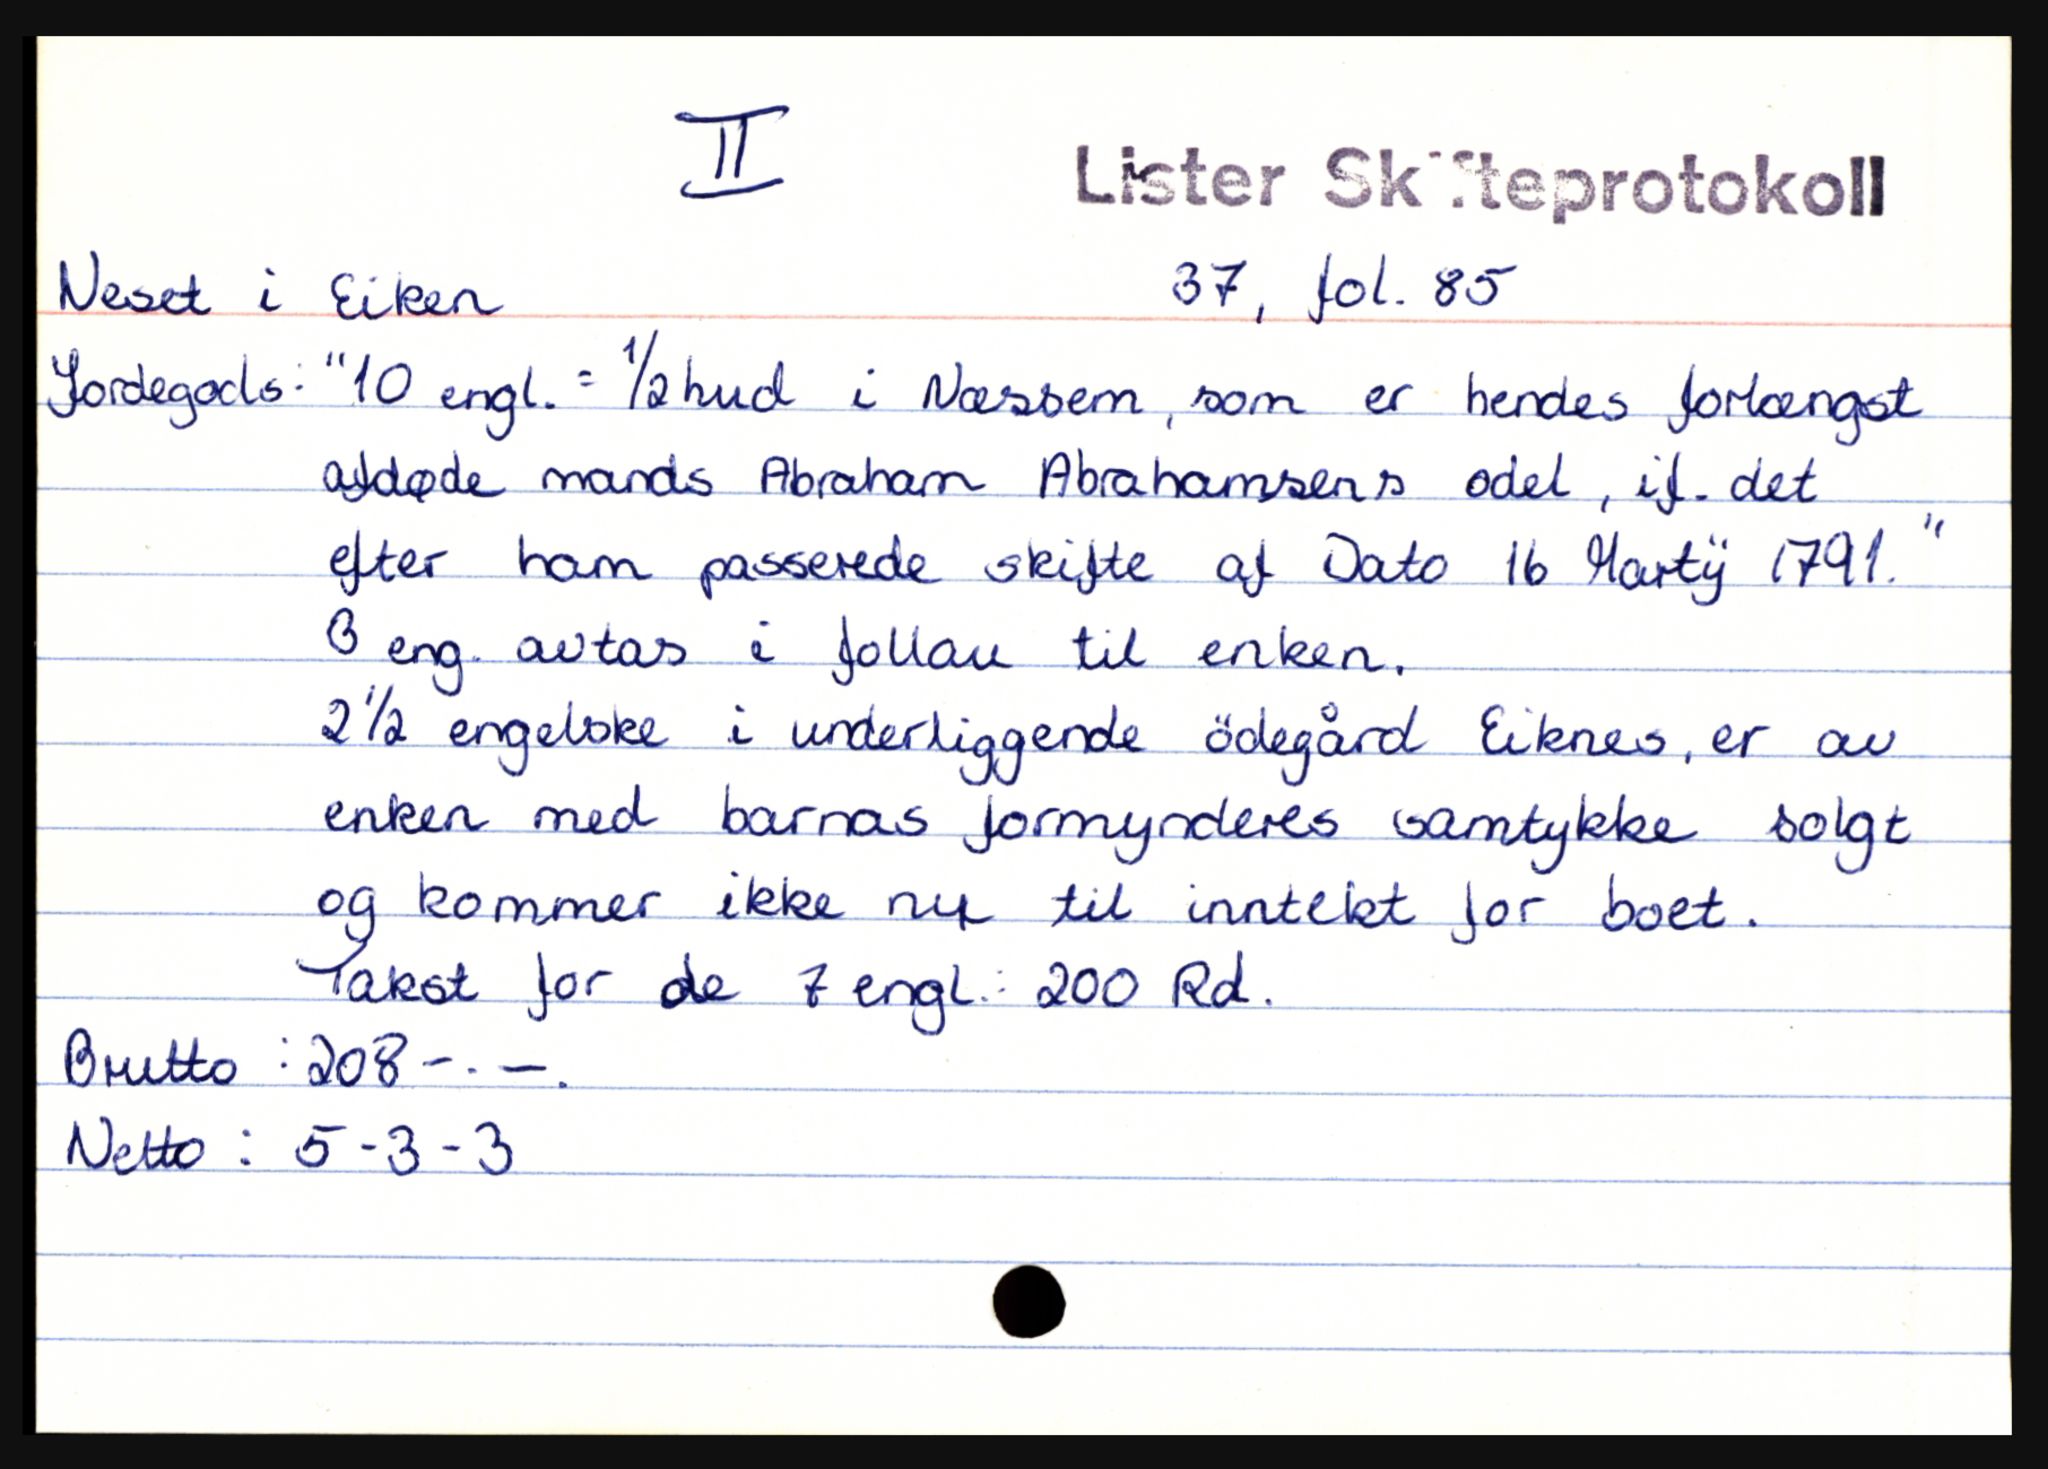 II
Lister Skifteprotokoll
Neset i Eiken 37, fol. 85
Jordegods: "10 engl. = 1/2 hud i Næssem, som er hendes forlængst
afdøde mands Abraham Abrahamsens odel, if. det
efter ham passerede skifte af Dato 16 Martÿ 1791."
3 eng. avtas i follau til enken.
2 1/2 engelske i underliggende ödegård Eiknes, er av
enken med barnas formynderes samtykke solgt
og kommer ikke nu til inntekt for boet.
Takst for de 7 engl.: 200 Rd.
Brutto : 208 - . - .
Netto : 5 - 3 - 3